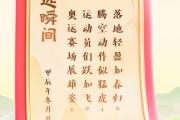 运瞬间
奥运赛场展雄姿，
运动员们跃如飞。
腾空动作似猛虎，
落地轻盈如春归。
甲辰年冬月